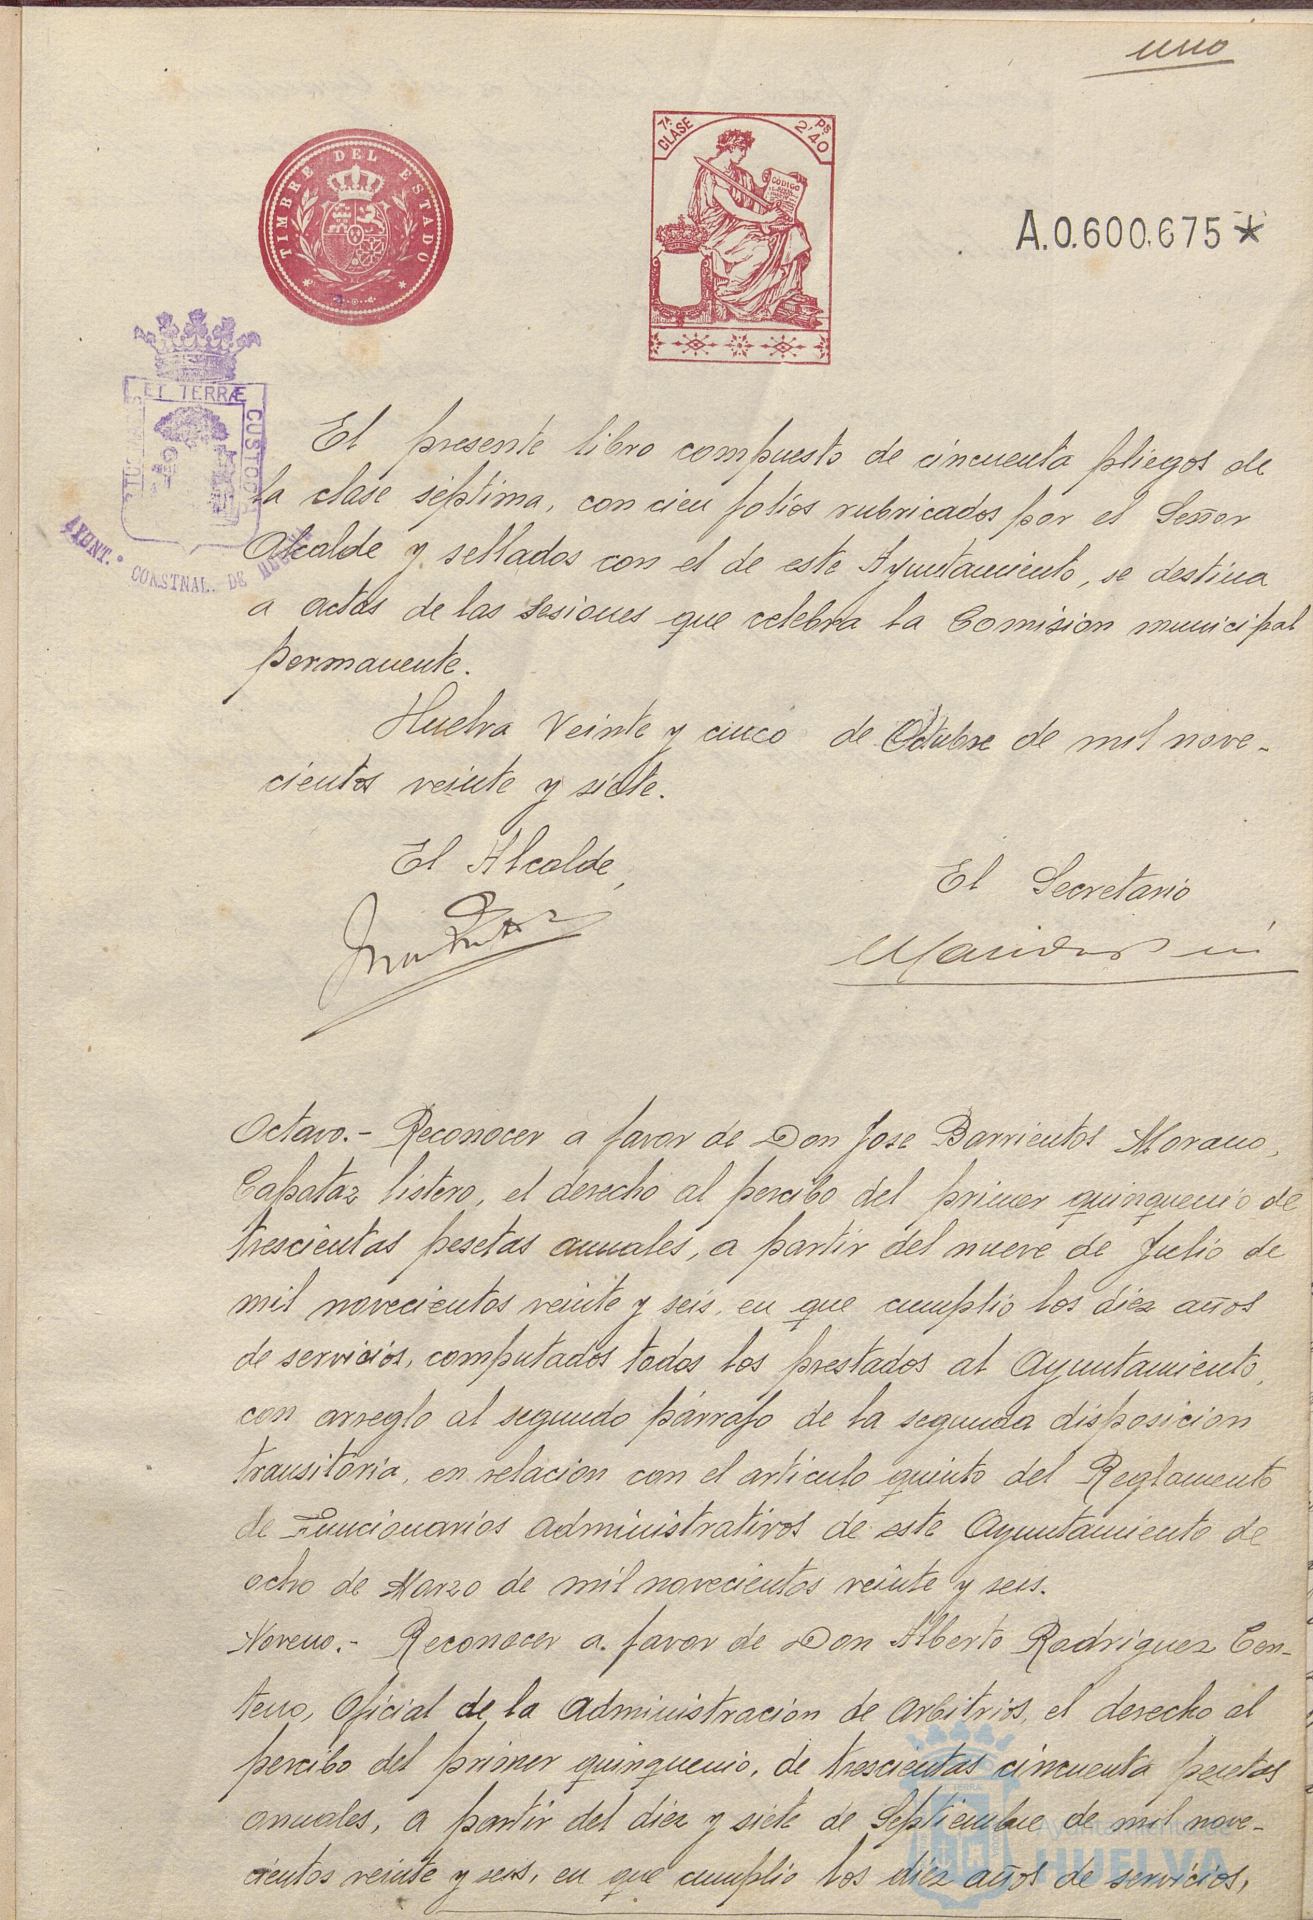 uno
TIMBRE DEL ESTADO
7ª CLASE
Ps 2'40
CÓDIGO
A.0.600.675*
ET TERRÆ
CUSTODIA
AYUNT.º CONSTNAL. DE HUELVA
El presente libro compuesto de cincuenta pliegos de
la clase séptima, con cien folios rubricados por el Señor
Alcalde y sellados con el de este Ayuntamiento, se destina
a actas de las sesiones que celebra la Comision municipal
permanente.
Huelva Veinte y cinco de Octubre de mil nove-
cientos veinte y siete.
El Alcalde,
El Secretario
Octavo.- Reconocer a favor de Don Jose Barrientos Morano,
Capataz listero, el derecho al percibo del primer quinquenio de
trescientas pesetas anuales, a partir del nueve de Julio de
mil novecientos veinte y seis, en que cumplio los diez años
de servicios, computados todos los prestados al Ayuntamiento,
con arreglo al segundo párrafo de la segunda disposicion
transitoria, en relacion con el articulo quinto del Reglamento
de Funcionarios administrativos de este Ayuntamiento de
ocho de Marzo de mil novecientos veinte y seis.
Noveno.- Reconocer a favor de Don Alberto Rodriguez Cen-
teno, Oficial de la Administracion de Arbitrios, el derecho al
percibo del primer quinquenio, de trescientas cincuenta pesetas
anuales, a partir del diez y siete de Septiembre de mil nove-
cientos veinte y seis, en que cumplio los diez años de servicios,
Ayuntamiento de
HUELVA